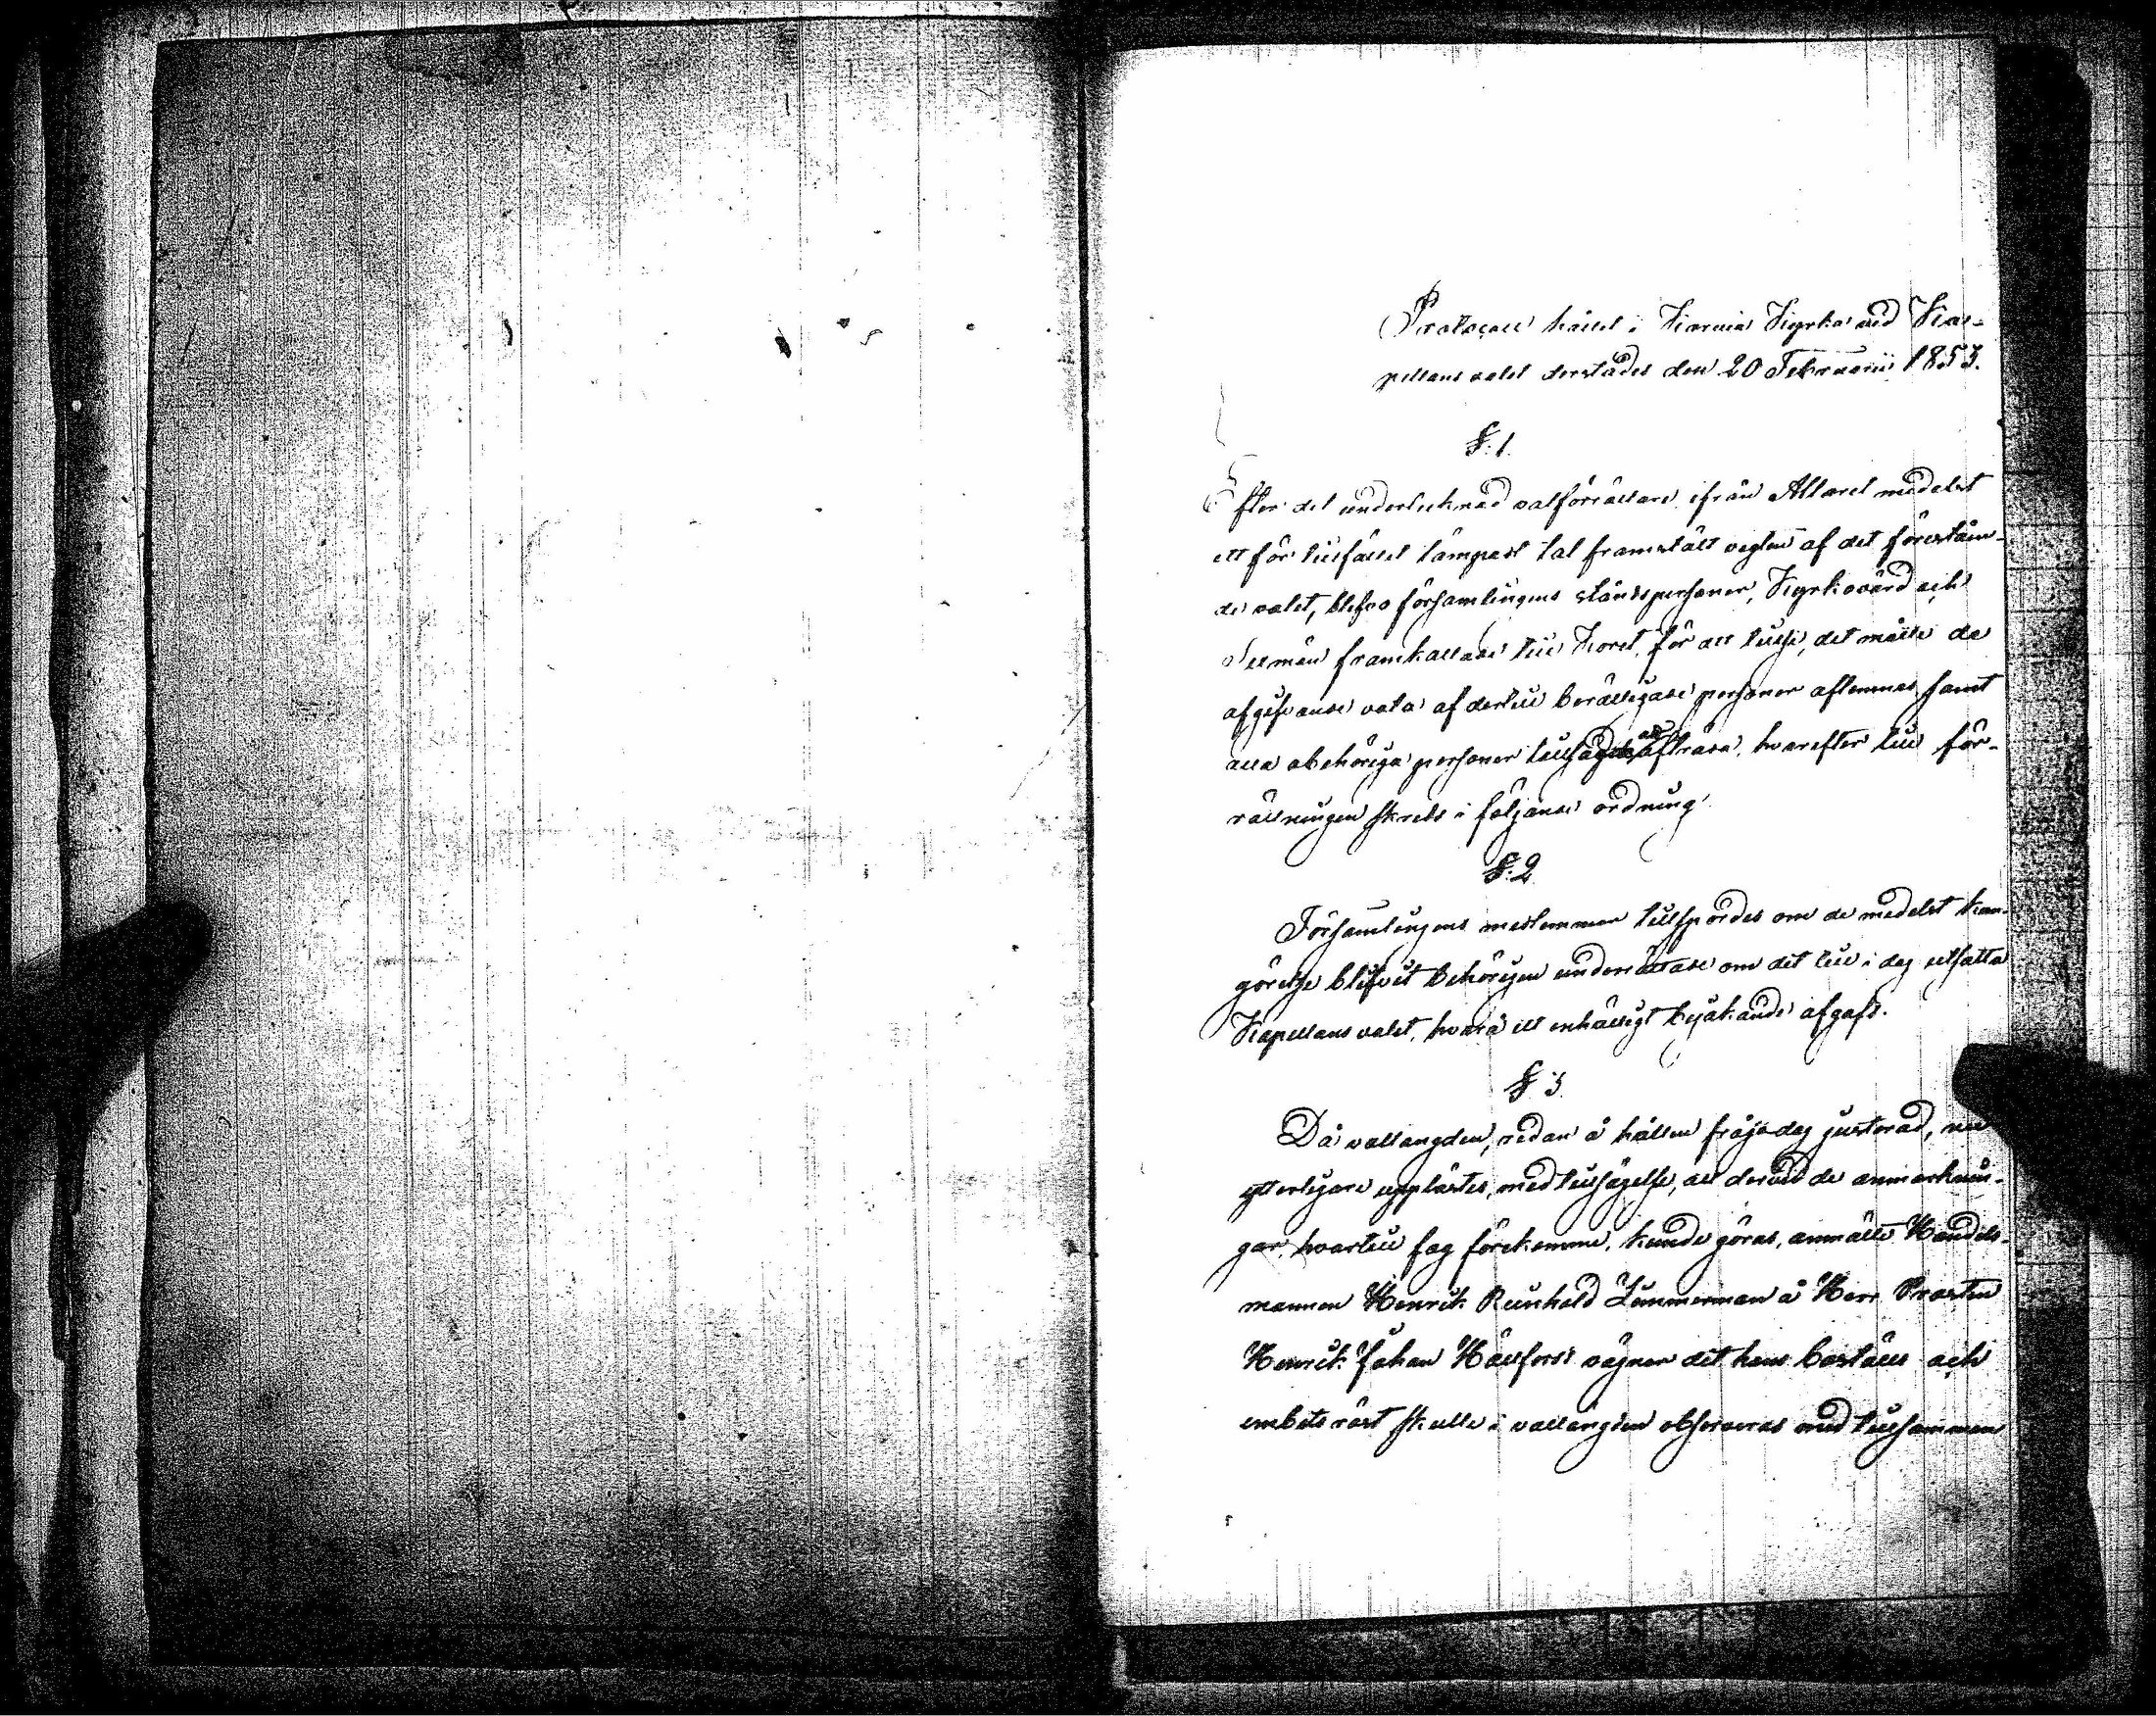 Protocoll hållet i Kiarnia Kyrka vid Kap-
pellans valet derstädes den 20 Februarii 1853.
§. 1.
Efter det undertecknad valförrättare ifrån Altaret medelst
ett för tillfället lämpadt tal framstält vigten af det förestån-
de valet, blefvo församlingens ståndspersoner, Kyrkovärd och
Sexmän framkallade till Koret, för att tillse, det måtte de
afgifvande vota af dertill berättigade personer aflemnas samt
alla obehöriga personer tillsades att afträda, hvarefter till för-
rättningen skreds i följande ordning.
§. 2.
Församlingens medlemmar tillspordes om de medelst kun-
görelse blifvit behörigen underrättade om det till i dag utsatta
Kapellans valet, hvarå ett enhälligt bejakande afgafs.
§ 3.
Då vallängden, redan å hållen frågedag justerad, nu
ytterligare upplästes, med tillsägelse, att dervid de anmärknin-
gar, hvartill fog förekomme, kunde göras, anmälte Handels-
mannen Henrik Reinhold Zimmerman å Herr Prosten
Henrik Johan Hällfors's vägnar det hans boställs och
embets röst skulle i vallängden observeras med tillsammans